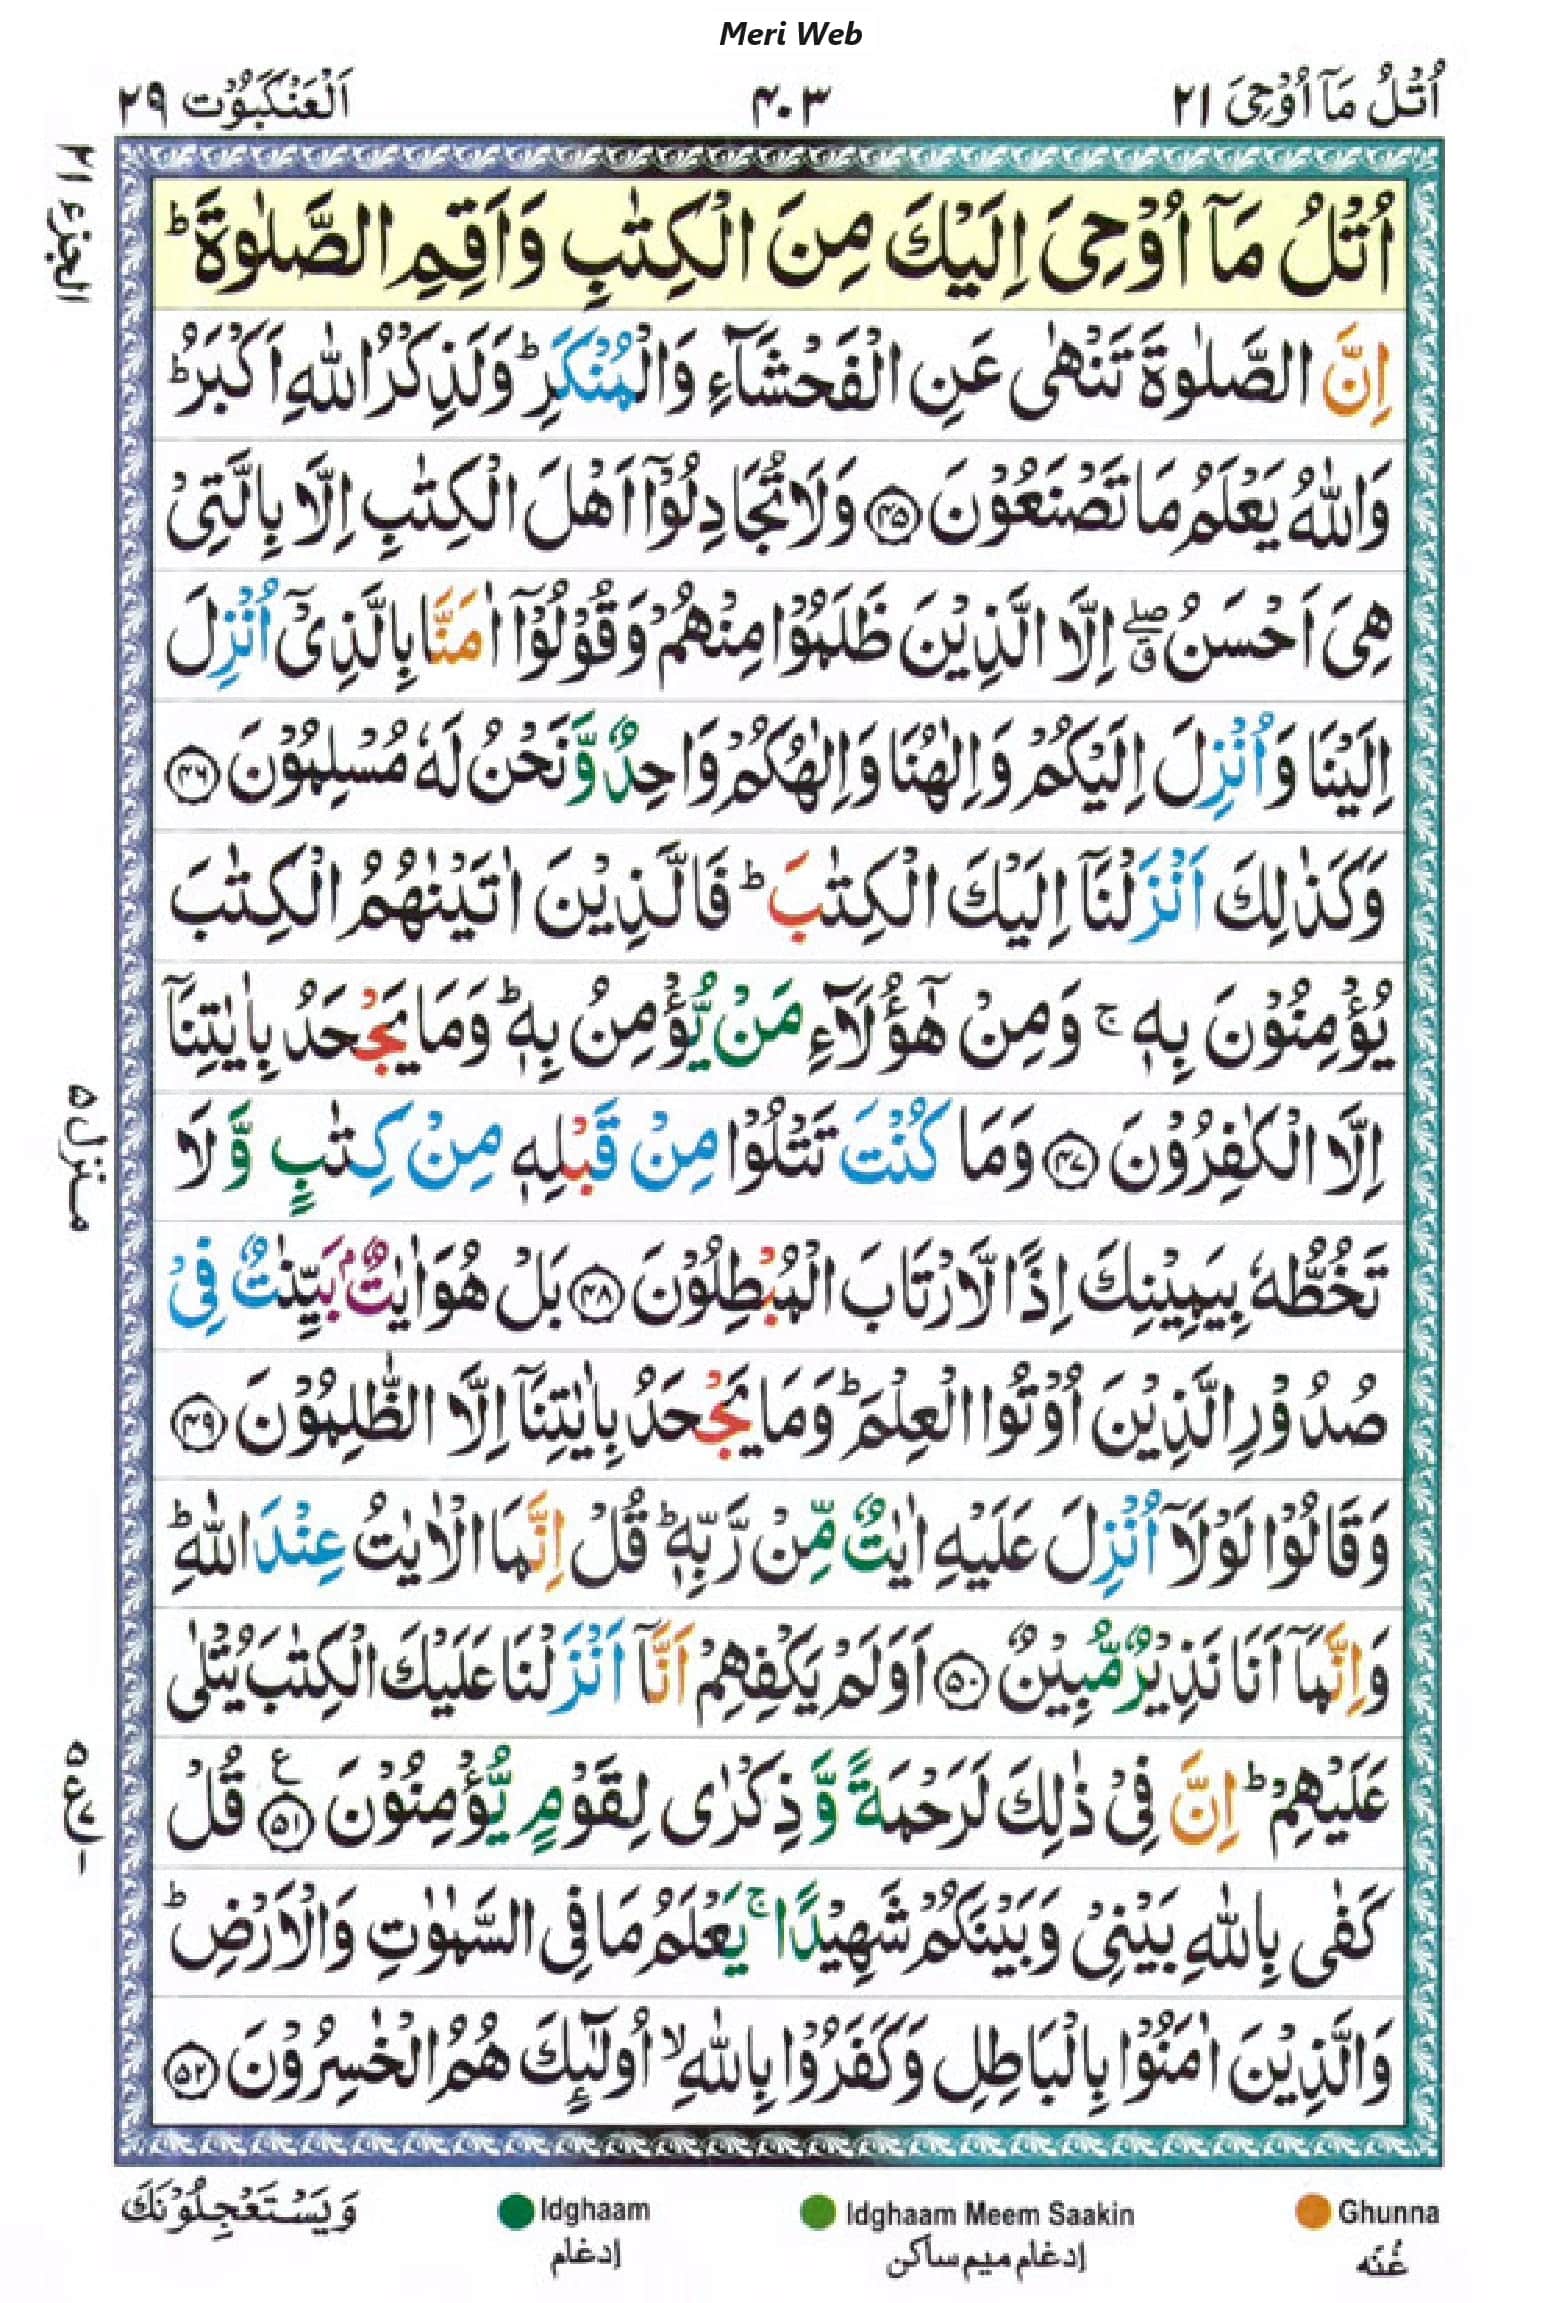 Meri Web
اُتْلُ مَاۤ اُوْحِیَ ۲۱
۴۰۳
اَلْعَنْكَبُوْت ۲۹
الجزء ۲۱
اُتْلُ مَاۤ اُوْحِیَ اِلَیْكَ مِنَ الْكِتٰبِ وَاَقِمِ الصَّلٰوةَ ؕ
اِنَّ الصَّلٰوةَ تَنْهٰی عَنِ الْفَحْشَآءِ وَالْمُنْكَرِ ؕ وَلَذِكْرُ اللّٰهِ اَكْبَرُ ؕ
وَاللّٰهُ یَعْلَمُ مَا تَصْنَعُوْنَ ﴿۴۵﴾ وَلَا تُجَادِلُوْۤا اَهْلَ الْكِتٰبِ اِلَّا بِالَّتِیْ
هِیَ اَحْسَنُ ۖۗ اِلَّا الَّذِیْنَ ظَلَمُوْا مِنْهُمْ وَقُوْلُوْۤا اٰمَنَّا بِالَّذِیْۤ اُنْزِلَ
اِلَیْنَا وَاُنْزِلَ اِلَیْكُمْ وَاِلٰهُنَا وَاِلٰهُكُمْ وَاحِدٌ وَّنَحْنُ لَهٗ مُسْلِمُوْنَ ﴿۴۶﴾
وَكَذٰلِكَ اَنْزَلْنَاۤ اِلَیْكَ الْكِتٰبَ ؕ فَالَّذِیْنَ اٰتَیْنٰهُمُ الْكِتٰبَ
یُؤْمِنُوْنَ بِهٖ ۚ وَمِنْ هٰۤؤُلَآءِ مَنْ یُّؤْمِنُ بِهٖ ؕ وَمَا یَجْحَدُ بِاٰیٰتِنَاۤ
اِلَّا الْكٰفِرُوْنَ ﴿۴۷﴾ وَمَا كُنْتَ تَتْلُوْا مِنْ قَبْلِهٖ مِنْ كِتٰبٍ وَّلَا
تَخُطُّهٗ بِیَمِیْنِكَ اِذًا لَّارْتَابَ الْمُبْطِلُوْنَ ﴿۴۸﴾ بَلْ هُوَ اٰیٰتٌۢ بَیِّنٰتٌ فِیْ
صُدُوْرِ الَّذِیْنَ اُوْتُوا الْعِلْمَ ؕ وَمَا یَجْحَدُ بِاٰیٰتِنَاۤ اِلَّا الظّٰلِمُوْنَ ﴿۴۹﴾
وَقَالُوْا لَوْلَاۤ اُنْزِلَ عَلَیْهِ اٰیٰتٌ مِّنْ رَّبِّهٖ ؕ قُلْ اِنَّمَا الْاٰیٰتُ عِنْدَ اللّٰهِ ؕ
وَاِنَّمَاۤ اَنَا نَذِیْرٌ مُّبِیْنٌ ﴿۵۰﴾ اَوَلَمْ یَكْفِهِمْ اَنَّاۤ اَنْزَلْنَا عَلَیْكَ الْكِتٰبَ یُتْلٰی
عَلَیْهِمْ ؕ اِنَّ فِیْ ذٰلِكَ لَرَحْمَةً وَّذِكْرٰی لِقَوْمٍ یُّؤْمِنُوْنَ ﴿۵۱﴾ ع قُلْ
كَفٰی بِاللّٰهِ بَیْنِیْ وَبَیْنَكُمْ شَهِیْدًا ۚ یَعْلَمُ مَا فِی السَّمٰوٰتِ وَالْاَرْضِ ؕ
وَالَّذِیْنَ اٰمَنُوْا بِالْبَاطِلِ وَكَفَرُوْا بِاللّٰهِ ۙ اُولٰٓىِٕكَ هُمُ الْخٰسِرُوْنَ ﴿۵۲﴾
منزل ۵
وَیَسْتَعْجِلُوْنَكَ
Idghaam
إدغام
Idghaam Meem Saakin
إدغام میم ساکن
Ghunna
غُنّه